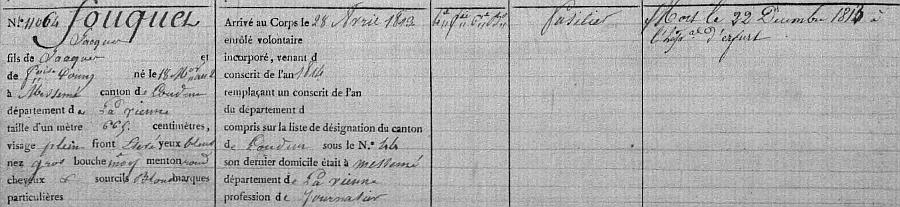 N.° 11064 Fouquet
Jacques
fils de Jacques et
de né le 18
à Messemé canton de Loudun
département de La Vienne
taille d'un mètre 665. centimètres,
visage plein front yeux bleus
nez gros bouche moy menton rond
cheveux & sourcils Blonds marques
particulières
Arrivé au Corps le 28 Avril 1813
enrôlé volontaire
incorporé, venant d
conscrit de l'an 1814
remplaçant un conscrit de l'an
du département d
compris sur la liste de désignation du canton
de Loudun sous le N.° 44
son dernier domicile était à messemé
département de La Vienne
profession de Journalier
fusilier
Mort le 22 Décembre 1813 à
l'hôp.al d'erfurt